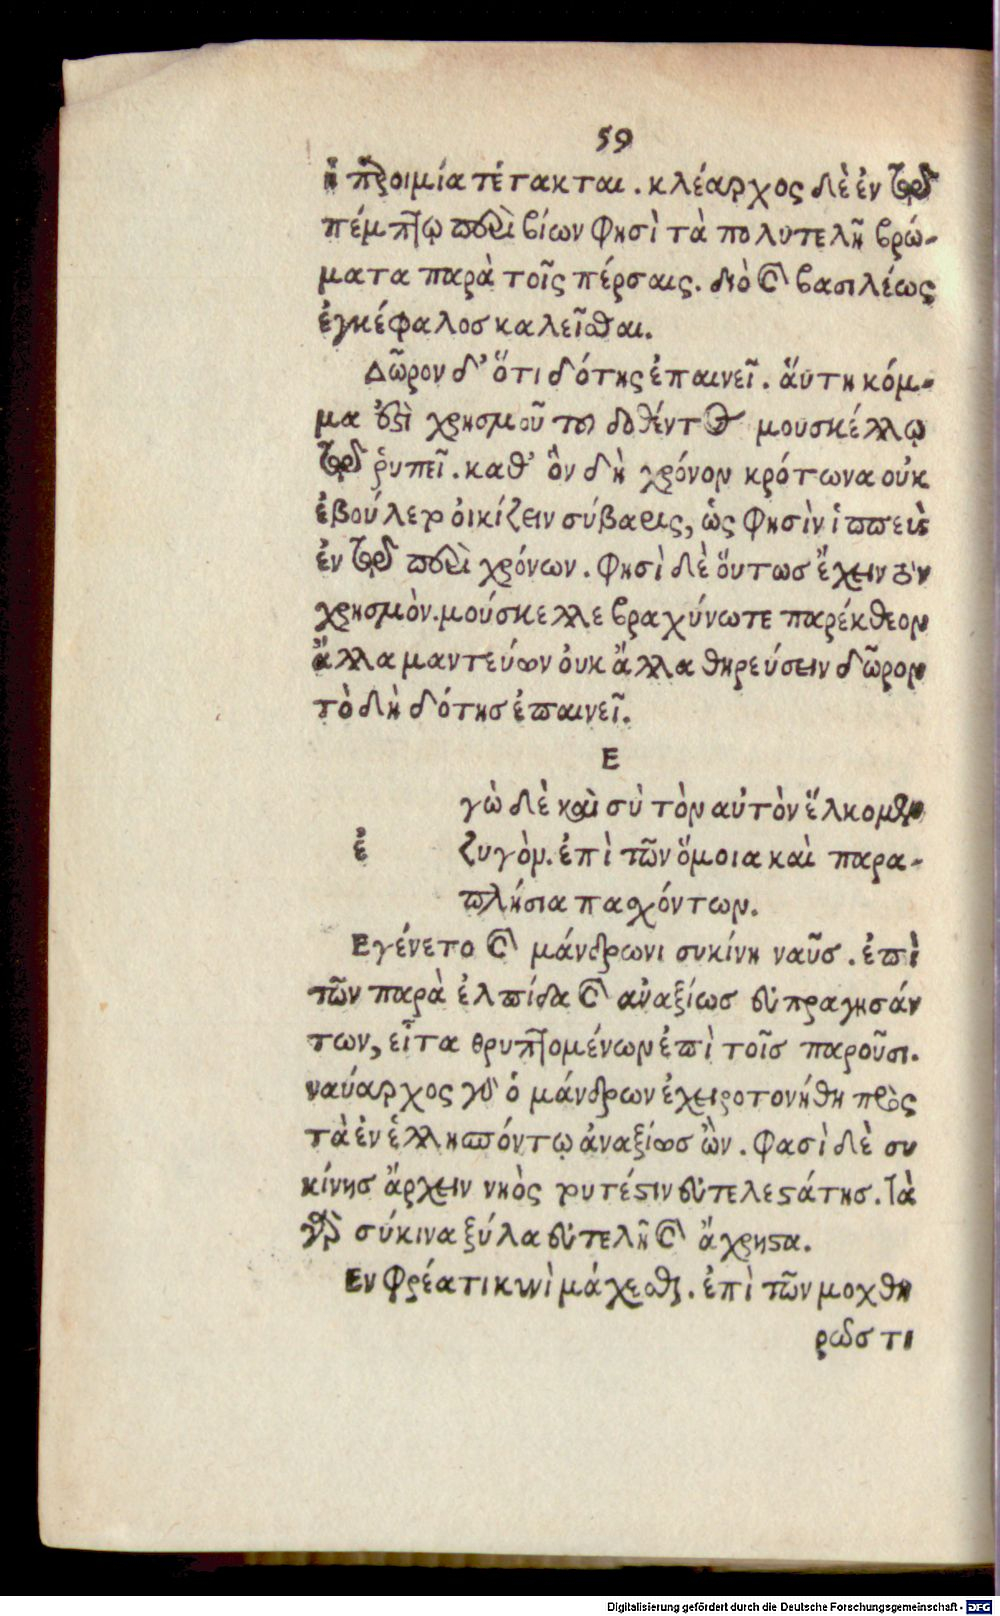 59
ἡ παροιμία τέτακται. κλέαρχος δὲ ἐν τῷ
πέμπτῳ περὶ βίων φησὶ τὰ πολυτελῆ βρώ-
ματα παρὰ τοῖς πέρσαις. διὸ καὶ βασιλέως
ἐγκέφαλοσ καλεῖσθαι.
Δῶρον δ' ὅτι δότης ἐπαινεῖ. ἅυτη κόμ-
μα ἐστὶ χρησμοῦ τοῦ δοθέντος μουσκέλλῳ
τῷ ῥυπεῖ. καθ' ὃν δὴ χρόνον κρότωνα οὐκ
ἐβούλετο οἰκίζειν σύβαρις, ὡς φησὶν ἱππεὺς
ἐν τῷ περὶ χρόνων. φησὶ δὲ ὅυτωσ ἔχειν τὸν
χρησμὸν. μούσκελλε βραχύνωτε παρέκθεον
ἄλλα μαντεύων ὀυκ ἄλλα θηρεύσειν δῶρον
τὸ δὴ δότησ ἐπαινεῖ.
Ε
γὼ δὲ καὶ σὺ τὸν αὐτὸν ἕλκομεν
ἐ ζυγὸν. ἐπὶ τῶν ὅμοια καὶ παρα-
πλήσια πασχόντων.
Εγένετο καὶ μάνδρωνι συκίνη ναῦσ. ἐπὶ
τῶν παρὰ ἐλπίδα καὶ αὐαξίωσ εὐπραγησάν
των, εἶτα θρυπτομένων ἐπὶ τοῖσ παροῦσι.
ναύαρχος γὰρ ὁ μάνδρων ἐχειροτονήθη πρὸς
τὰ ἐν ἑλλησπόντῳ ἀναξίωσ ὢν. φασὶ δὲ συ
κίνησ ἄρχειν νηὸς τουτέστιν εὐτελεστάτησ. τὰ
γὰρ σύκινα ξύλα εὐτελῆ καὶ ἄχρηστα.
Εν φρέατι κυνὶ μάχεσθαι. ἐπὶ τῶν μοχθη
ρῶσ τι
Digitalisierung gefördert durch die Deutsche Forschungsgemeinschaft - DFG